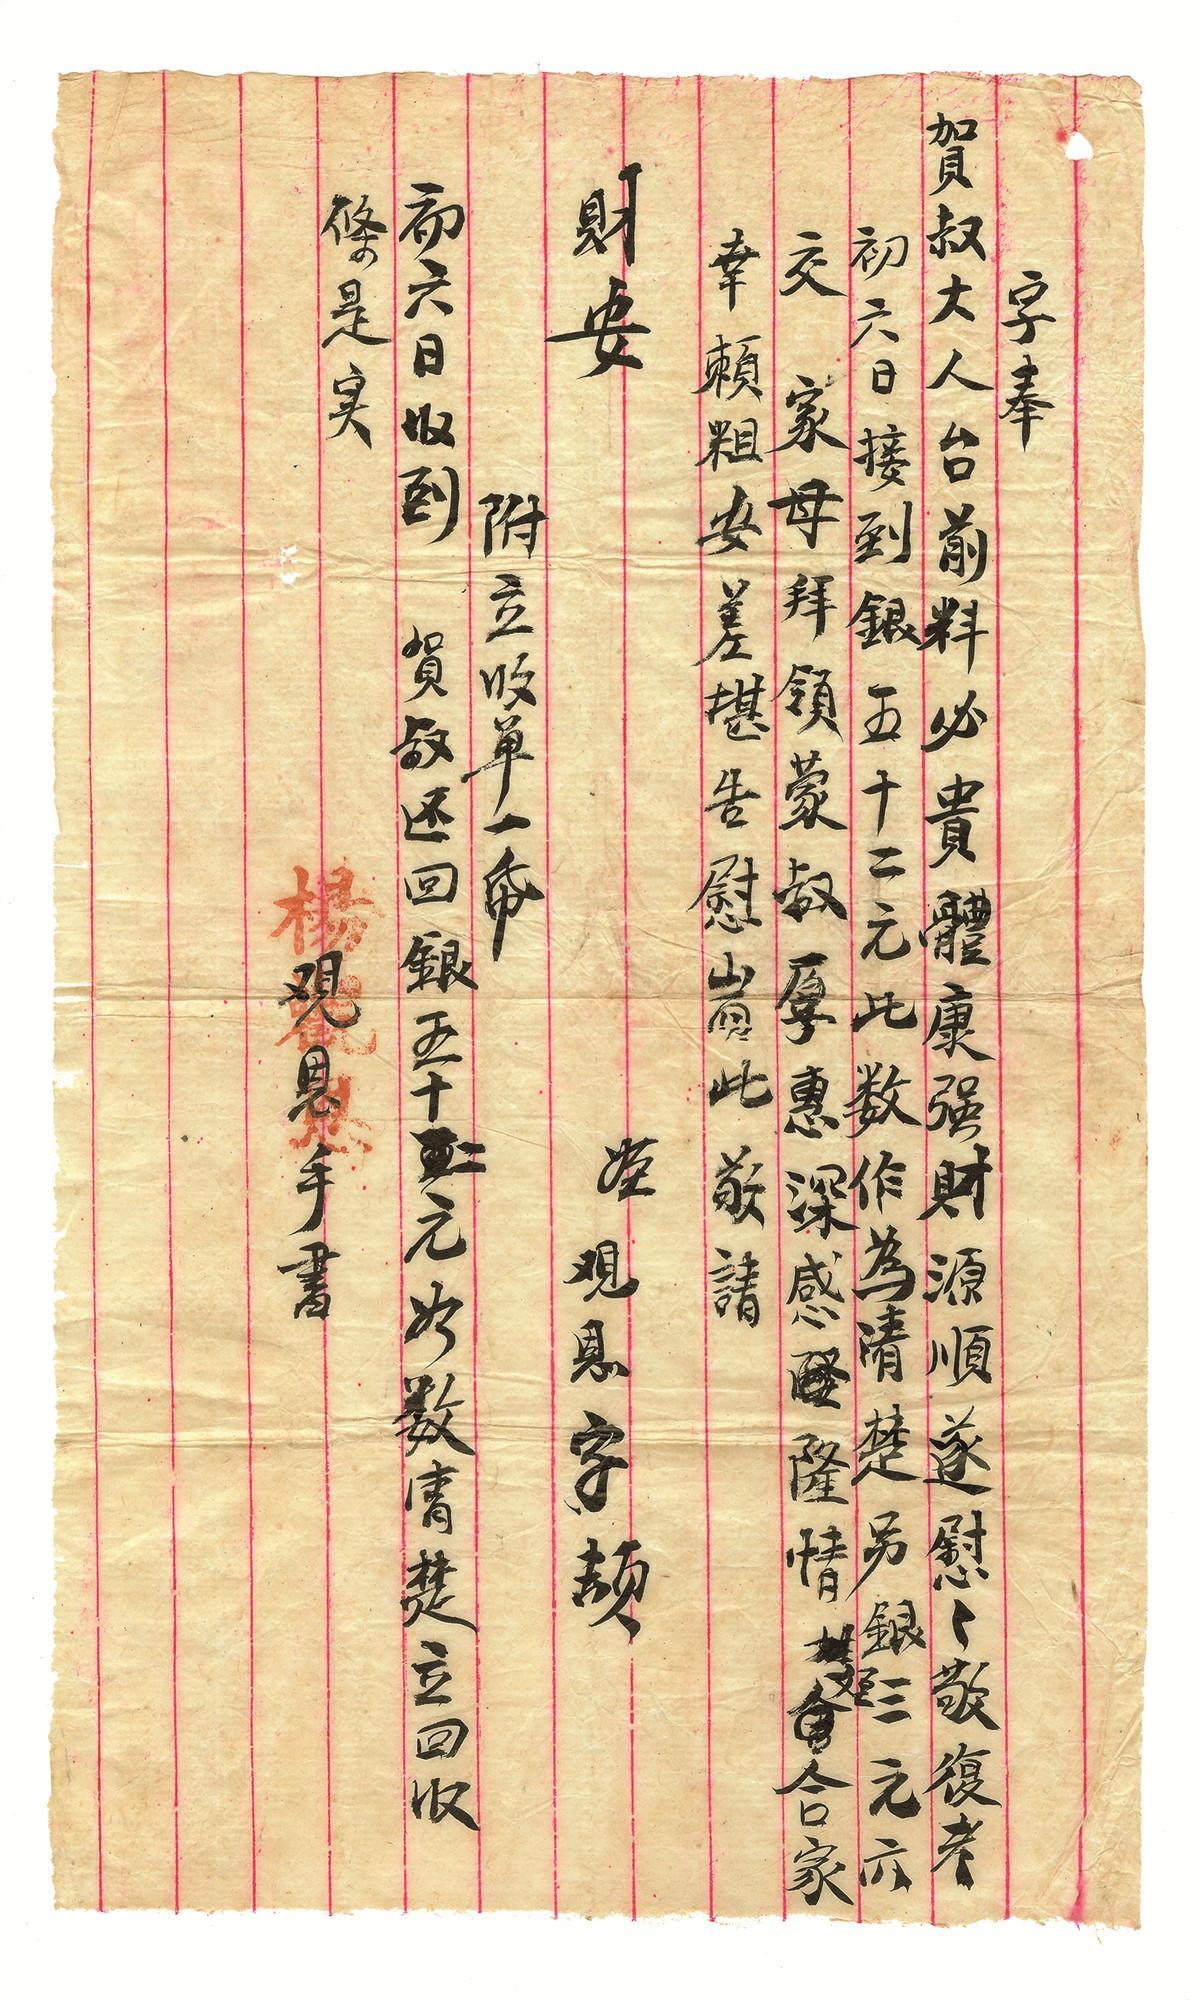 字奉
賀叔大人台前料必貴體康强財源順遂慰〻敬復者
初六日接到銀五十二元此数作為清楚另銀三元亦
交 家母拜領蒙叔厚惠深感隆情姪合家
幸頼粗安差堪告慰耑此敬請
財安
姪观恩字頓
附立收单一帋
初六日收到 賀叔还回銀五十二元如数清楚立回收
條是实
楊觀恩
观恩手書